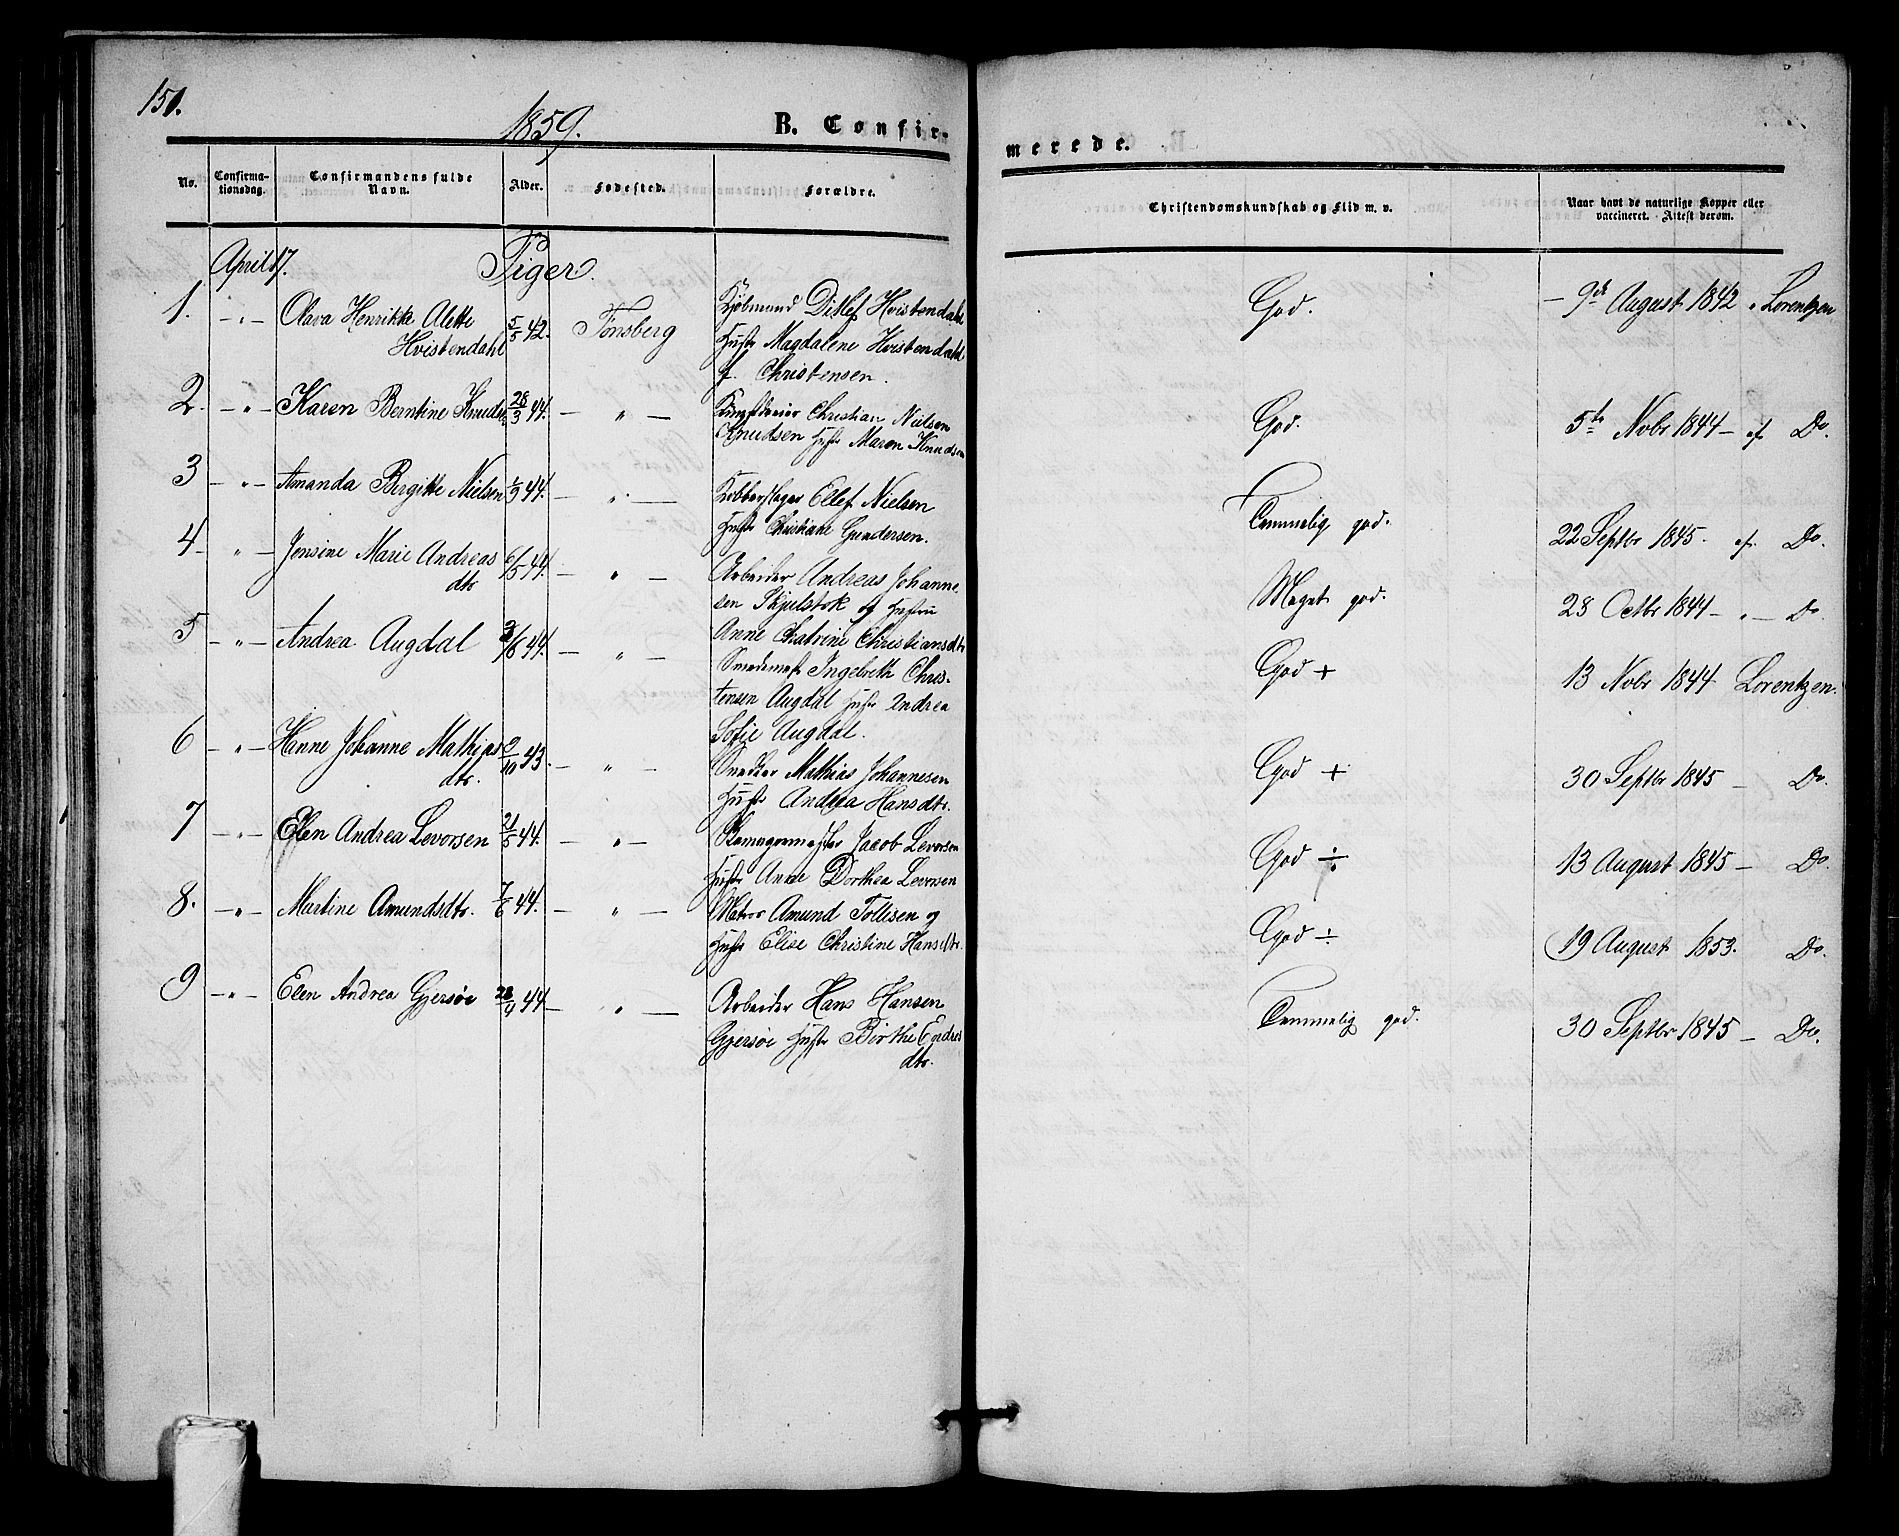 151.
1859.
B. Confir-
merede.
No.
Confirma-
tionsdag.
Confirmandens fulde
Navn.
Alder.
Fødested.
Forældre.
Christendomskundskab og Flid m. v.
Naar havt de naturlige Kopper eller
vaccineret. Attest derom.
April 17.
Piger.
1. - " - Olava Henrikke Alette
Hvistendahl
5/5 42.
Tønsberg
Kjøbmand Ditlef Hvistendahl
Hustr Magdalene Hvistendahl
f. Christensen.
God.
- 9de August 1842 " Lorentzen
2. - " - Karen Berntine Knudsen
28/3 44. - " -
Christian Nielsen
Knudsen Hustr Maren Knudsen
God.
5te Novbr 1844 - af Do.
3 - " - Amanda Bergitte Nielsen
1/9 44. - " -
Kobberslager Ellef Nielsen
Hustr Christiane Gundersen.
Temmelig god.
22 Septbr 1845. af. Do.
4 - " - Jensine Marie Andreas
dtr
6/5 44. - " -
Arbeider Andreas Johanne-
sen Skjelstok og Hustru
Anne Chatrine Christiansdtr
Meget god.
28 Octbr 1844 - " - Do
5 - " - Andrea Augdal
3/8 44. - " -
Smedemestr Ingebreth Chris-
tensen Augdal Hustr Andrea
Sofie Augdal.
God +
13 Novbr 1844 Lorentzen.
6 - " - Hanne Johanne Mathias
dtr.
2/10 43. - " -
Snedker Mathias Johannesen
Hustr Andrea Hansdtr.
God +
30 Septbr 1845 - Do.
7 - " - Elen Andrea Levorsen
21/5 44. - " -
Skomagermester Jacob Levorsen
Hustr Anne Dorthea Levorsen
God ÷
13 August 1845 - Do
8. - " - Martine Amundsdtr.
7/6 44. - " -
Matros Amund Tollisen og
Hustr Elise Christine Hansdtr.
God ÷
19 August 1853. Do.
9 - " - Elen Andrea Gjersøe
28/4 44 - " -
Arbeider Hans Hansen
Gjersøe Hustr Birthe Endres
dtr.
Temmelig god.
30 Septbr 1845 - Do.